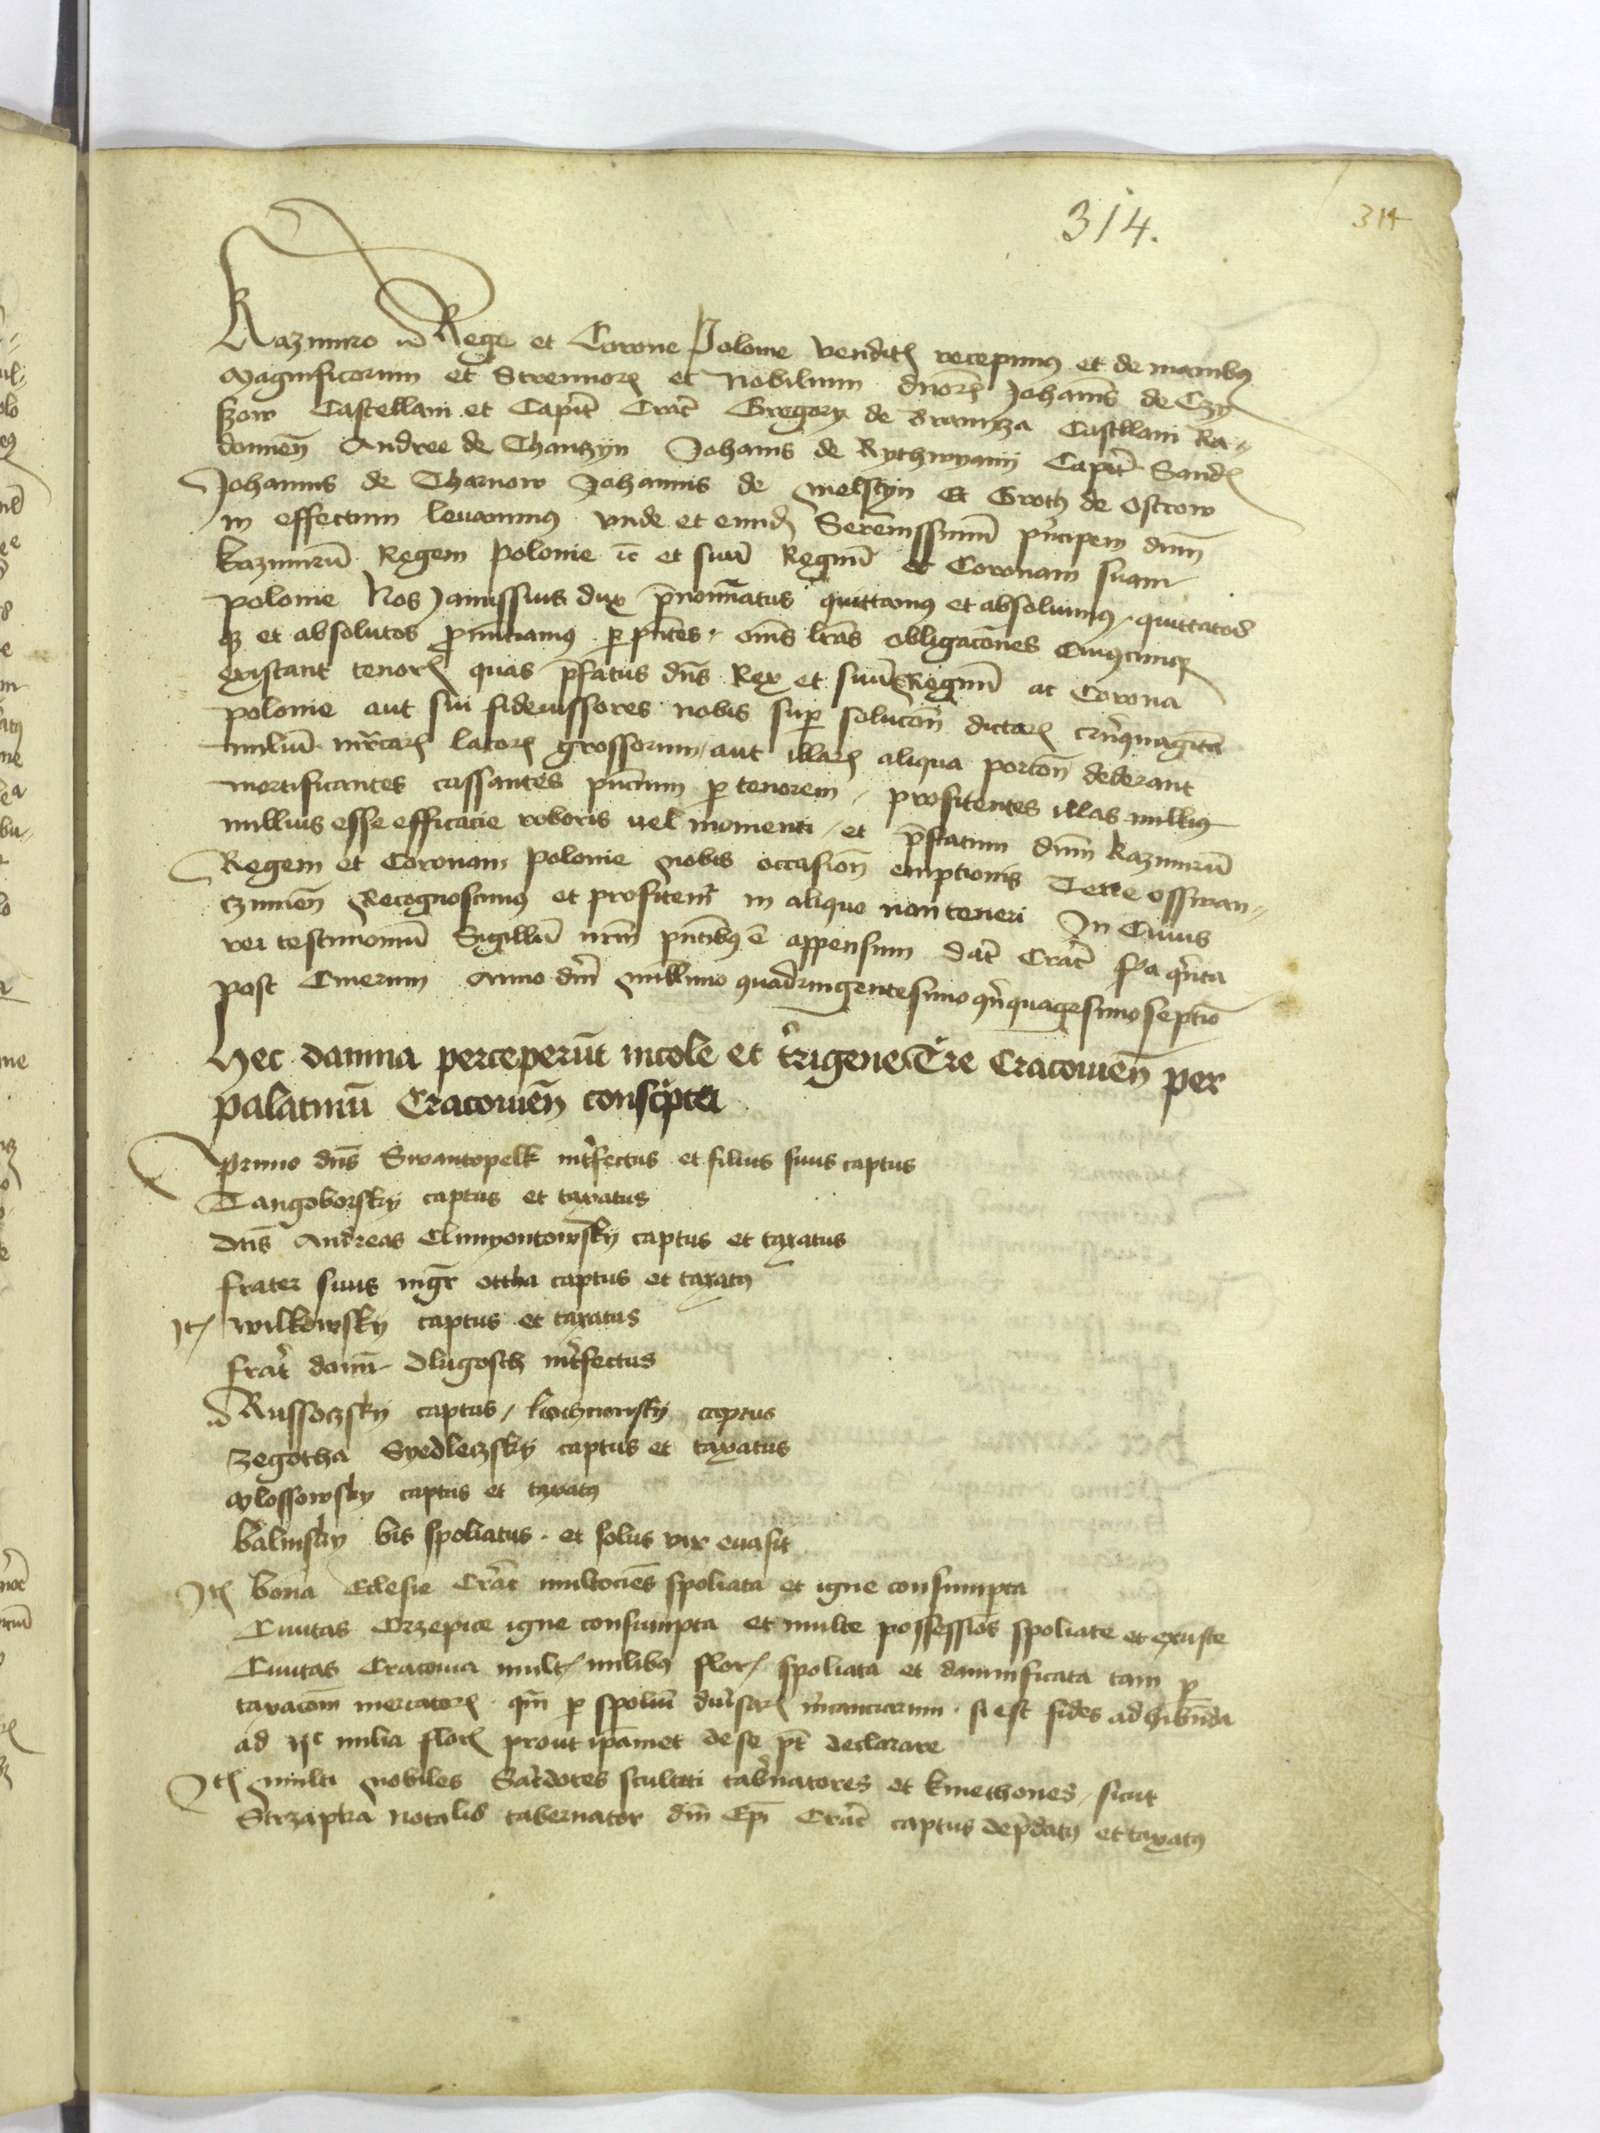 314.
314
Kazimiro Rege et Corone Polonie vendit recepimus et de manibus
Magnificorum et Strennuor et Nobilium dnor Johanis de Czy
szow Castellani et Capit Crac Gregory de Branycza Castllani Ra-
domien Andree de Thanczyn Johanis de Rythwyany Capit Sand
Johannis de Tharnow Johannis de Melstyn Et Groth de Ostrow
in effectum levavimus vnde et eund Serenissimu principem dnm
Kazimiru Regem Polonie et suu Regnu et Coronam suam
polonie Nos Janussius dux pnominatus quittamus et absoluimus quittatos
qz et absolutos pronuciamus p pntes oms lras obligacones cuiuscunqz
existant tenor quas pfatus dns Rex et suu Regnu ac Corona
polonie aut sui fideiussores nobis sup solucon dictar quinquaginta
miliu mrcar lator grossorum aut illar aliqua porcon dederant
mortificantes cassantes pncium p tenorem profitentes illas nullius
nullius esse efficacie roboris vel momenti et pfatum dnm Kazimiru
Regem et Coronam Polonie nobis occasion emptionis Terre osswan-
czimen Recognoscimus et profitemr in aliquo non teneri In Cuius
rei testimoniu Sigillu nrm pntibus e appensum Dat Crac fia quinta
post Cinerum Anno dni millimo quadringentesimo quinquagesimo septio
Hec damna perceperut incole et trigene Tre Cracouien per
palatinu Cracouien conscripta
primo dns Swantopelk intrfectus et filius suus captus
Tangoborsky captus et taxatus
dns Andreas Clmyontowsky captus et taxatus
frater suus mgr ottha captus et taxatus
It Wilkowsky captus et taxatus
fratr domi Dlugosch intrfectus
Russoczsky captus / Kochnowsky captus
Zegotha Syedleczsky captus et taxatus
Mlossowsky captus et taxatus
Balinsky bis spoliatus et solus vix euasit
Ite bona Eclesie Crac multociens spoliata et igne consumpta
Ciuitas Crzepice igne consumpta et multe possessios spoliate et exuste
Ciuitas Cracouia mult milibus flor spoliata et damnificata tam p
taxacom mercator qm p spoliu diuersar mrcanciarum si est fides adhibnda
ad iic milia flor prout ipamet de se pt declarare
Ite multi nobiles Sacrdotes sculteti tabrnatores et kmethones sicut
Strzapka notalis tabernator dni Epi Crac captus depdatus et taxatus